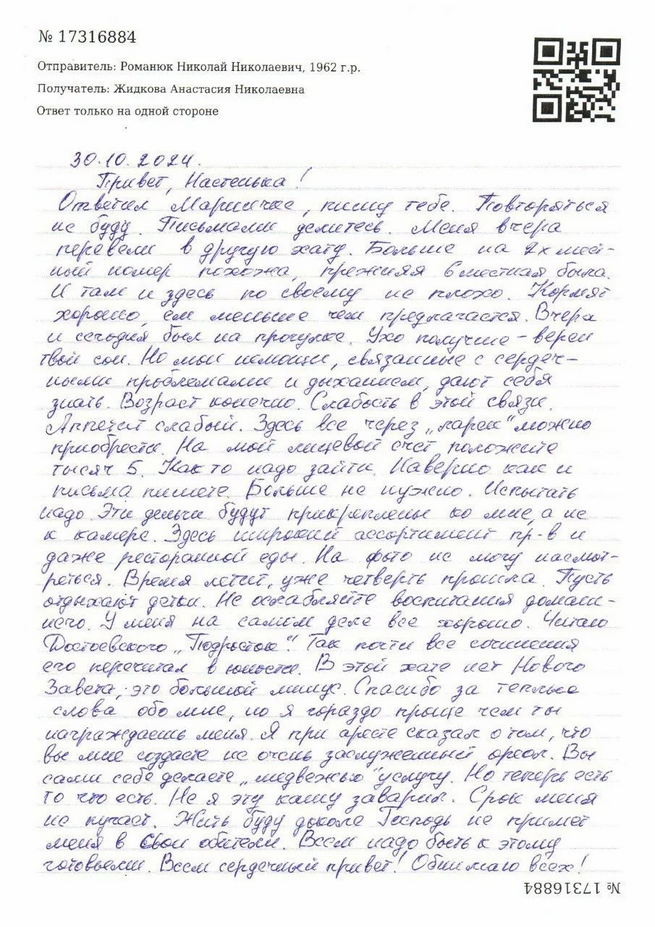 № 17316884
Отправитель: Романюк Николай Николаевич, 1962 г.р.
Получатель: Жидкова Анастасия Николаевна
Ответ только на одной стороне
30.10.2024.
Привет, Настенька!
Ответил Мариичке, пишу тебе. Повторяться
не буду. Письмами делитесь. Меня вчера
перевели в другую хату. Больше на 2х мест-
ный номер похожа, прежняя 6местная была.
И там и здесь по своему не плохо. Кормят
хорошо, ем меньше чем предлагается. Вчера
и сегодня был на прогулке. Ухо получше - верен
твой сон. Но мои немощи, связанные с сердеч-
ными проблемами и дыханием, дают себя
знать. Возраст конечно. Слабость в этой связи.
Аппетит слабый. Здесь все через „ларек" можно
приобрести. На мой лицевой счет положите
тысяч 5. Как то надо зайти. Наверно как и
письма пишете. Больше не нужно. Испытать
надо. Эти деньги будут прикреплены ко мне, а не
к камере. Здесь широкий ассортимент пр-в и
даже ресторанной еды. На фото не могу насмот-
реться. Время летит, уже четверть прошла. Пусть
отдыхают детки. Не ослабляйте воспитания домаш-
него. У меня на самом деле все хорошо. Читаю
Достоевского „Подросток". Так почти все сочинения
его перечитал в юности. В этой хате нет Нового
Завета, это большой минус. Спасибо за теплые
слова обо мне, но я гораздо проще чем ты
награждаешь меня. Я при аресте сказал о том, что
вы мне создаете не очень заслуженный ореол. Вы
сами себе делаете „медвежью" услугу. Но теперь есть
то что есть. Не я эту кашу заварил. Срок меня
не пугает. Жить буду доколе Господь не примет
меня в Свои обители. Всем надо быть к этому
готовыми. Всем сердечный привет! Обнимаю всех!
№ 17316884